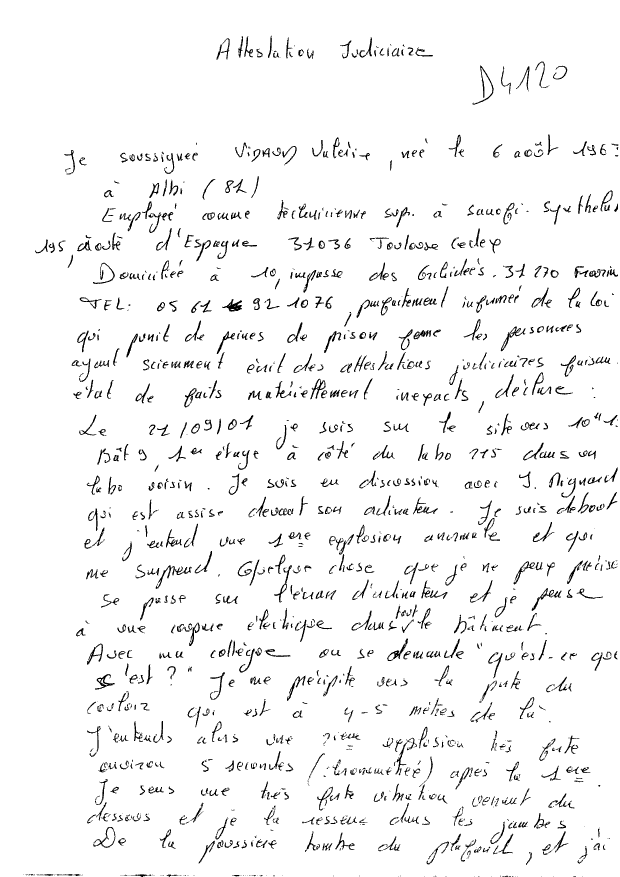 Attestation Judiciaire
D4120
Je soussignée VIDAUD Valérie, née le 6 août 1963
à Albi (81)
Employée comme technicienne sup. à Sanofi. Synthelab
195, route d'Espagne 31036 Toulouse Cedex
Domiciliée à 10, impasse des Orchidées. 31270
TEL: 05 61 92 1076, parfaitement informée de la loi
qui punit de peines de prison ferme les personnes
ayant sciemment écrit des attestations judiciaires faisan
état de faits matériellement inexacts, déclare :
Le 21/09/01 je suis sur le site vers 10H1
Bât 9, 1er étage à côté du labo 115 dans un
labo voisin. Je suis en discussion avec J. Mignard
qui est assise devant son ordinateur. Je suis debout
et j'entend une 1ere explosion anormale et qui
me surprend. Quelque chose que je ne peux précise
se passe sur l'écran d'ordinateur et je pense
à une coupure électrique dans tout le bâtiment.
Avec ma collègue on se demande "qu'est-ce que
c'est ?" Je me précipite vers la porte du
couloir qui est à 4-5 mètres de là.
J'entends alors une 2ième explosion très forte
environ 5 secondes (chronométrée) après la 1ere.
Je sens une très forte vibration venant du
dessous et je la ressens dans les jambes
De la poussière tombe du plafond, et j'ai